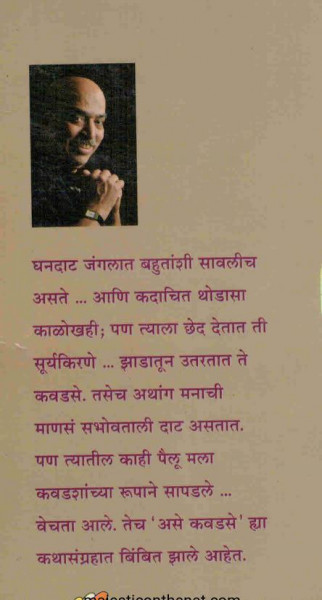 घनदाट जंगलात बहुतांशी सावलीच
असते ... आणि कदाचित थोडासा
काळोखही; पण त्याला छेद देतात ती
सूर्यकिरणे ... झाडातून उतरतात ते
कवडसे. तसेच अथांग मनाची
माणसं सभोवताली दाट असतात.
पण त्यातील काही पैलू मला
कवडशांच्या रूपाने सापडले ...
वेचता आले. तेच 'असे कवडसे' ह्या
कथासंग्रहात बिंबित झाले आहेत.